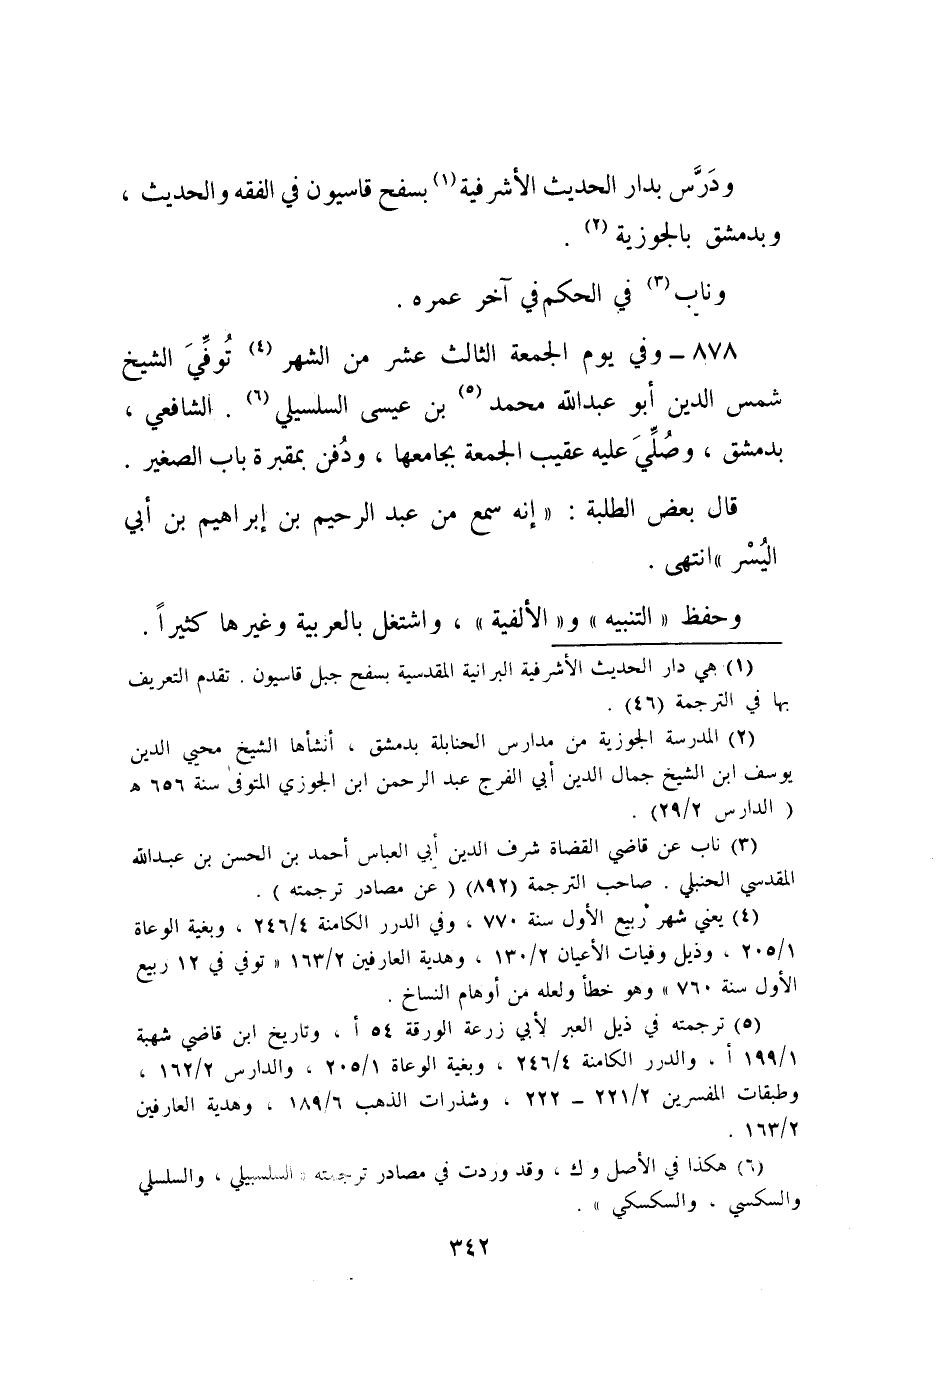 ودَرَّس بدار الحديث الأشرفية(١) بسفح قاسيون في الفقه والحديث ،
وبدمشق بالجوزية (٢) .
وناب(٣) في الحكم في آخر عمره .
٨٧٨ ـ وفي يوم الجمعة الثالث عشر من الشهر (٤) تُوفِّيَ الشيخ
شمس الدين أبو عبدالله محمد (٥) بن عيسى السلسيلي (٦) . الشافعي ،
بدمشق ، وصُلِّيَ عليه عقيب الجمعة بجامعها ، ودُفن بمقبرة باب الصغير .
قال بعض الطلبة : « إنه سمع من عبد الرحيم بن إبراهيم بن أبي
اليُسْر »انتهى .
وحفظ « التنبيه » و« الألفية » ، واشتغل بالعربية وغيرها كثيراً .
(١) هي دار الحديث الأشرفية البرانية المقدسية بسفح جبل قاسيون . تقدم التعريف
بها في الترجمة (٤٦) .
(٢) المدرسة الجوزية من مدارس الحنابلة بدمشق ، أنشأها الشيخ محيي الدين
يوسف ابن الشيخ جمال الدين أبي الفرج عبد الرحمن ابن الجوزي المتوفى سنة ٦٥٦ هـ
( الدارس ٢٩/٢) .
(٣) ناب عن قاضي القضاة شرف الدين أبي العباس أحمد بن الحسن بن عبدالله
المقدسي الحنبلي . صاحب الترجمة (٨٩٢) ( عن مصادر ترجمته ) .
(٤) يعني شهر ربيع الأول سنة ٧٧٠ ، وفي الدرر الكامنة ٢٤٦/٤ ، وبغية الوعاة
٢٠٥/١ ، وذيل وفيات الأعيان ١٣٠/٢ ، وهدية العارفين ١٦٣/٢ « توفي في ١٢ ربيع
الأول سنة ٧٦٠ » وهو خطأ ولعله من أوهام النساخ .
(٥) ترجمته في ذيل العبر لأبي زرعة الورقة ٥٤ أ ، وتاريخ ابن قاضي شهبة
١٩٩/١ أ ، والدرر الكامنة ٢٤٦/٤ ، وبغية الوعاة ٢٠٥/١ ، والدارس ١٦٢/٢ ،
وطبقات المفسرين ٢٢١/٢ ـ ٢٢٢ ، وشذرات الذهب ١٨٩/٦ ، وهدية العارفين
١٦٣/٢ .
(٦) هكذا في الأصل و ك ، وقد وردت في مصادر ترجمته « السلسبيلي ، والسلسلي
والسكسي ، والسكسكي » .
٣٤٢